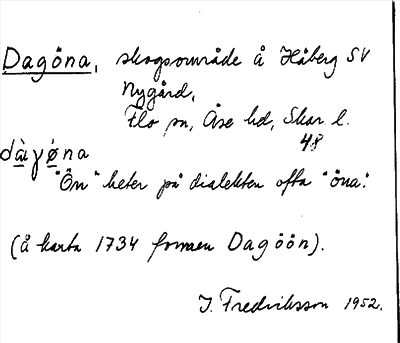 Dagöna, skogsområde å Håberg SV
Nygård,
Flo sn, Åse hd, Skar l.
48
dàγǿna
"Ön" heter på dialekten ofta "öna".
(å karta 1734 formen Dagöön).
I. Fredriksson 1952.